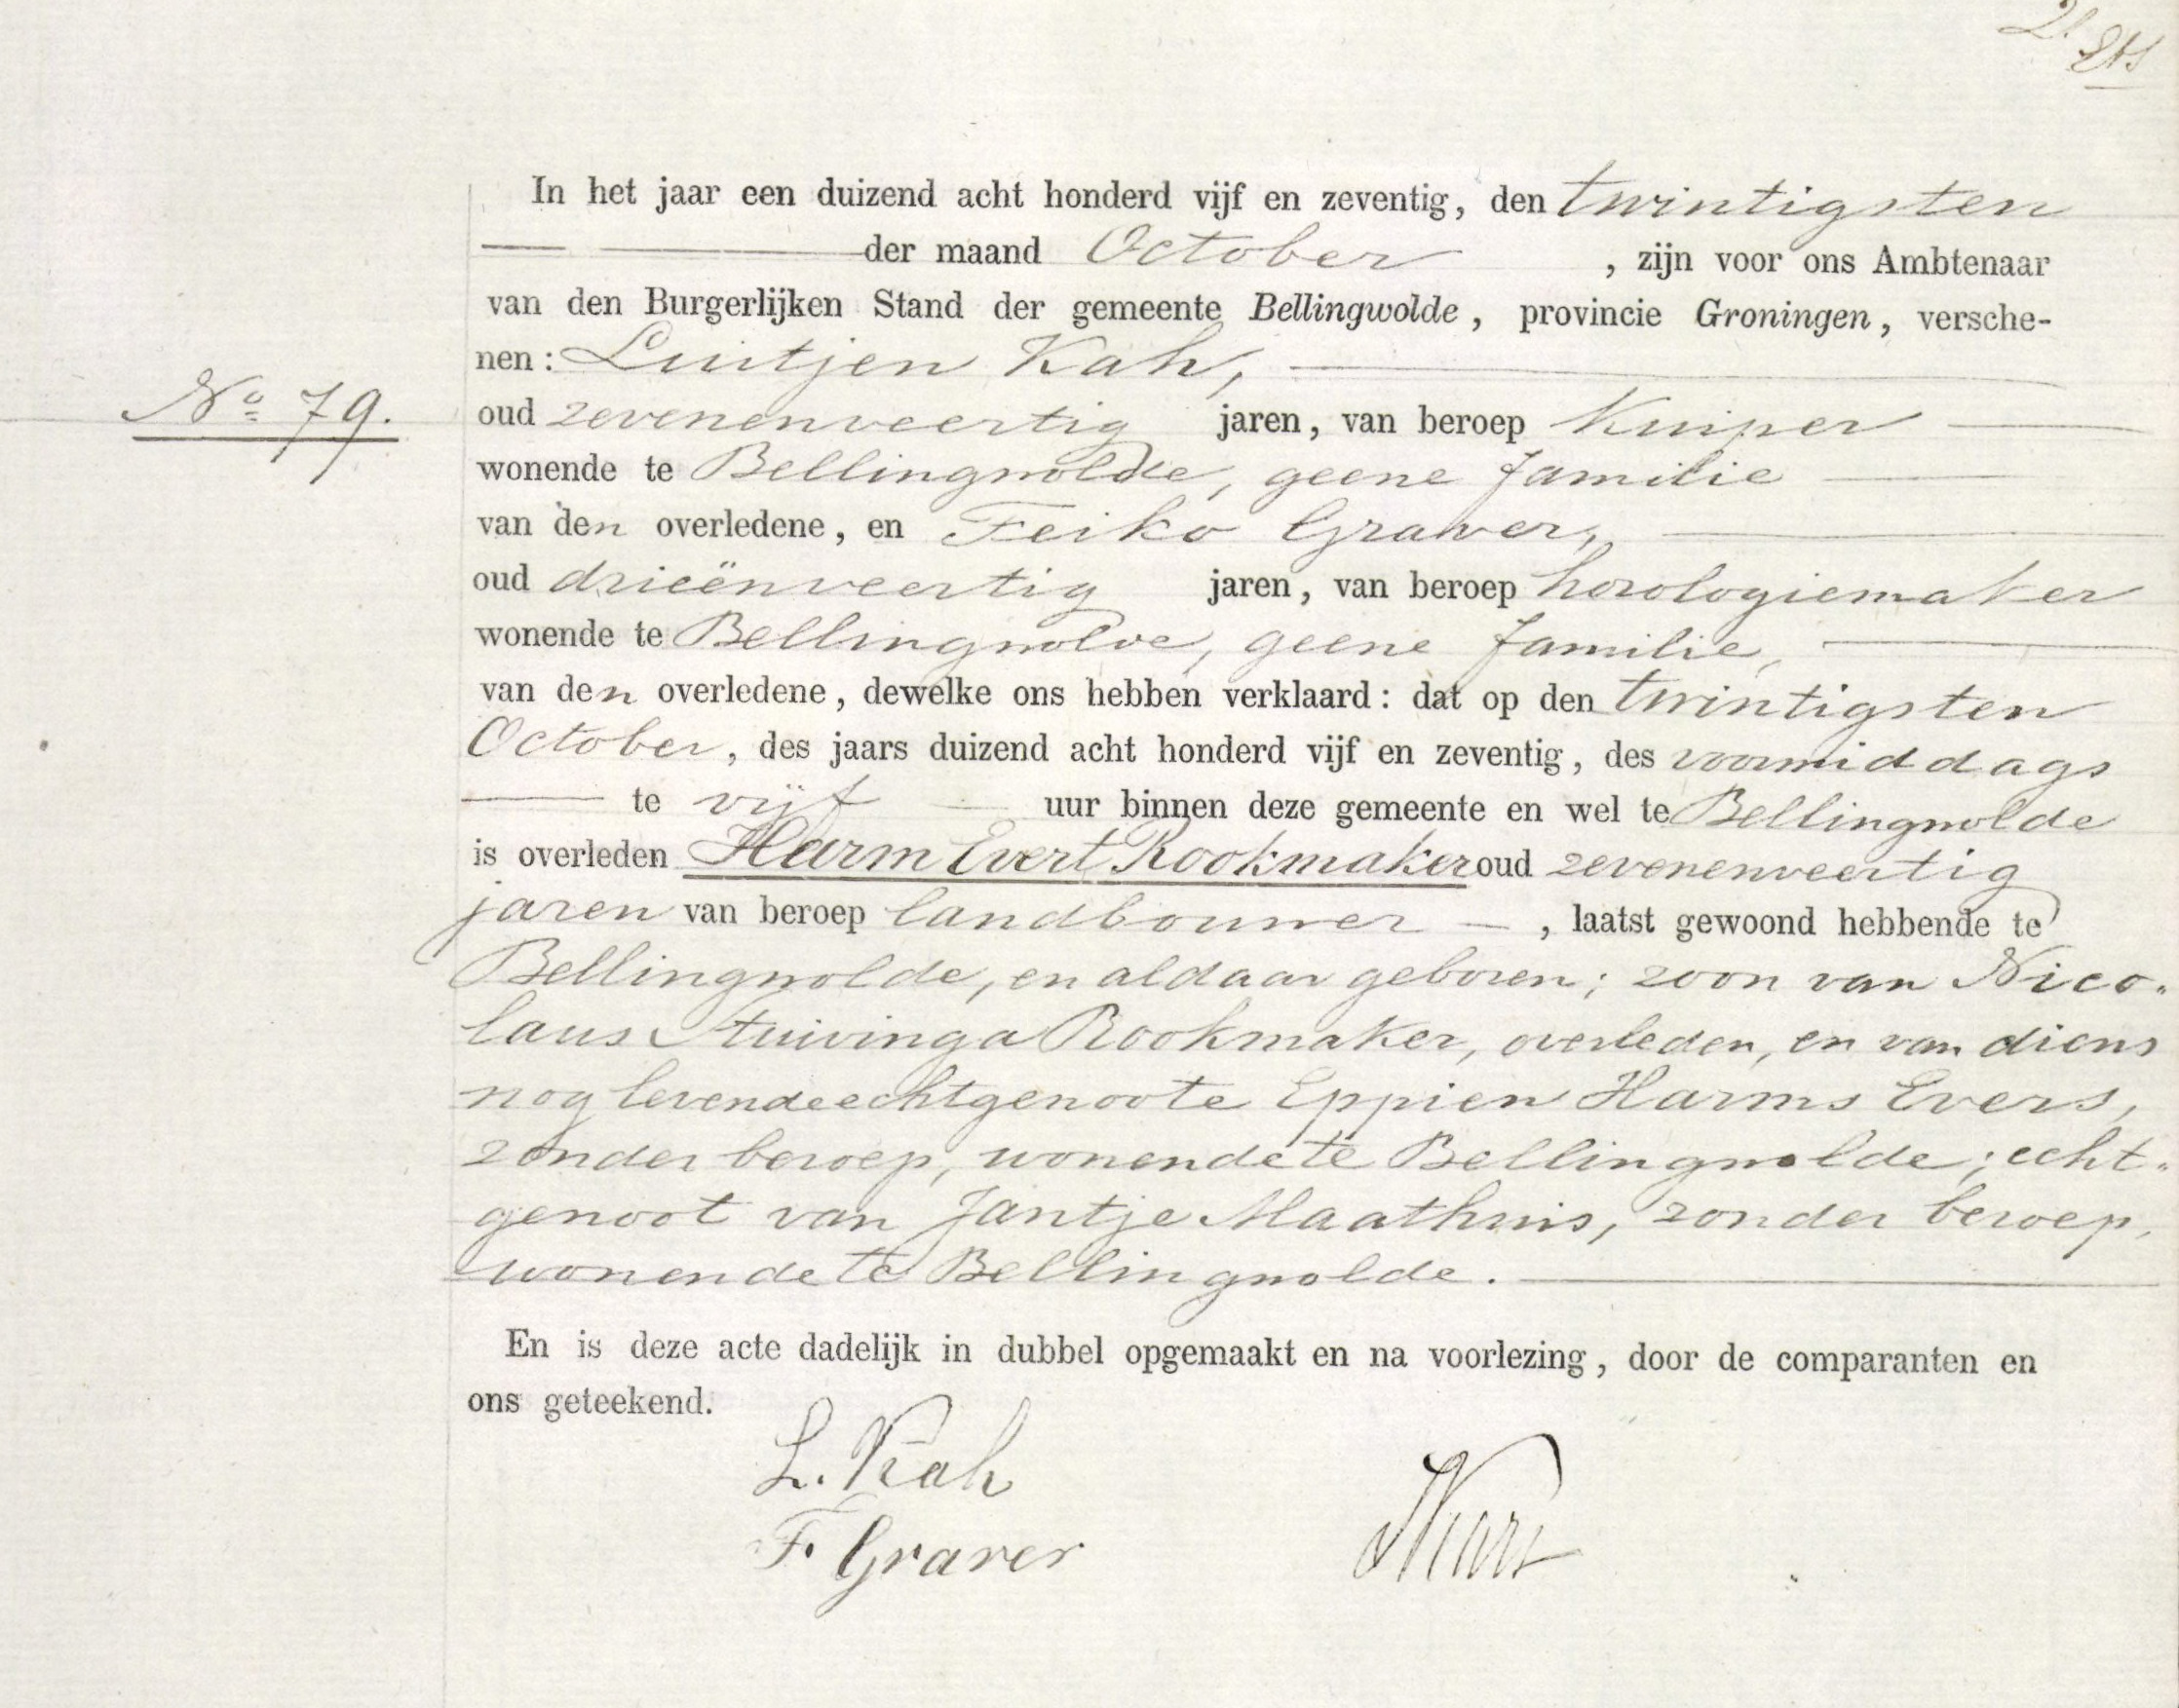 21.
In het jaar een duizend acht honderd vijf en zeventig, den twintigsten
der maand October, zijn voor ons Ambtenaar
van den Burgerlijken Stand der gemeente Bellingwolde, provincie Groningen, versche-
nen: Luitjen Kah,
No 79.
oud zevenenveertig jaren, van beroep Kuiper
wonende te Bellingwolde, geene familie
van den overledene, en Feiko Graver,
oud drieënveertig jaren, van beroep horologiemaker
wonende te Bellingwolde, geene familie,
van den overledene, dewelke ons hebben verklaard: dat op den twintigsten
October, des jaars duizend acht honderd vijf en zeventig, des voormiddags
te vijf uur binnen deze gemeente en wel te Bellingwolde
is overleden Harm Evert Rookmaker oud zevenenveertig
jaren van beroep landbouwer, laatst gewoond hebbende te
Bellingwolde, en aldaar geboren; zoon van Nico-
laus Stuivinga Rookmaker, overleden, en van diens
nog levende echtgenoote Eppien Harms Evers,
zonder beroep, wonende te Bellingwolde; echt-
genoot van Jantje Maathuis, zonder beroep,
wonende te Bellingwolde.
En is deze acte dadelijk in dubbel opgemaakt en na voorlezing, door de comparanten en
ons geteekend.
L. Kah
F. Graver